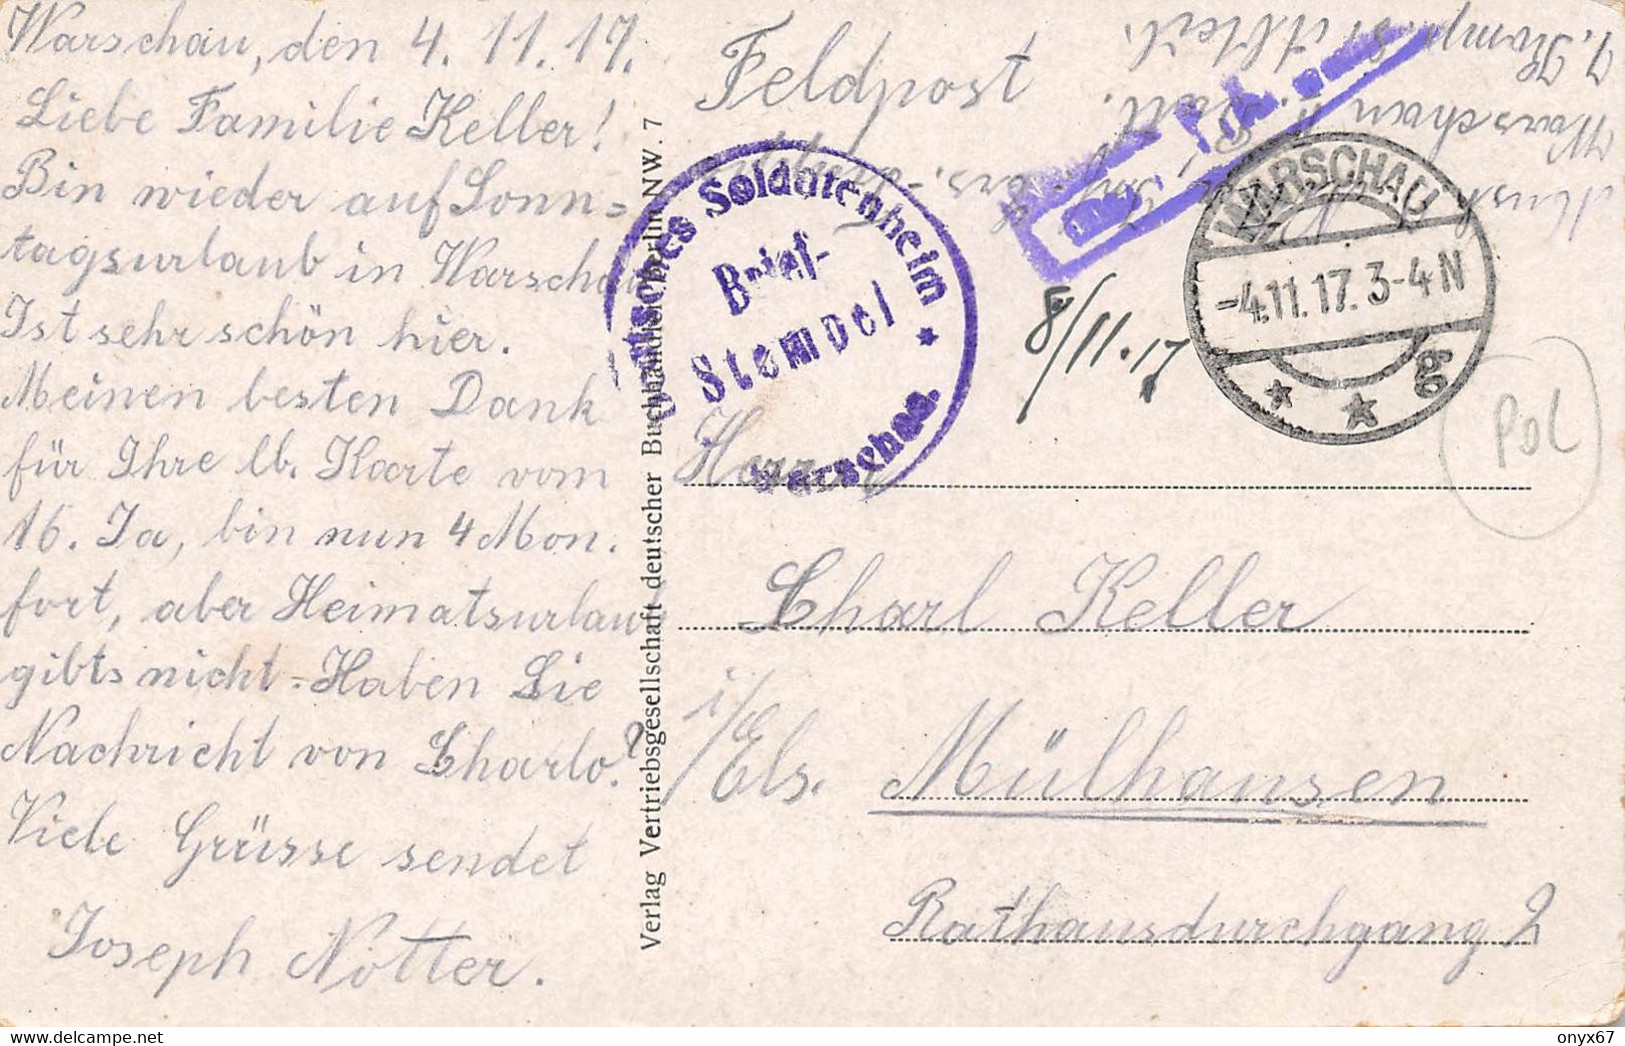 Warschau, den 4. 11. 17.
Liebe Familie Keller!
Bin wieder auf Sonn=
tagsurlaub in Warschau
Ist sehr schön hier.
Meinen besten Dank
für Ihre lb. Karte vom
16. Ja, bin nun 4 Mon.
fort, aber Heimatsurlaub
gibts nicht. Haben Sie
Nachricht von Charlo?
Viele Grüsse sendet
Joseph Notter.
Verlag Vertriebsgesellschaft deutscher Buchhändler Berlin NW. 7
Feldpost
Musk
Warschau
1. Komp.
Deutsches Soldatenheim
Brief-
Stempel
Warschau.
WARSCHAU
-4.11.17. 3-4 N
8/11.17
POL
Herrn
Charl Keller
i/Els. Mülhausen
Rathausdurchgang 2
delcampe.net
onyx67